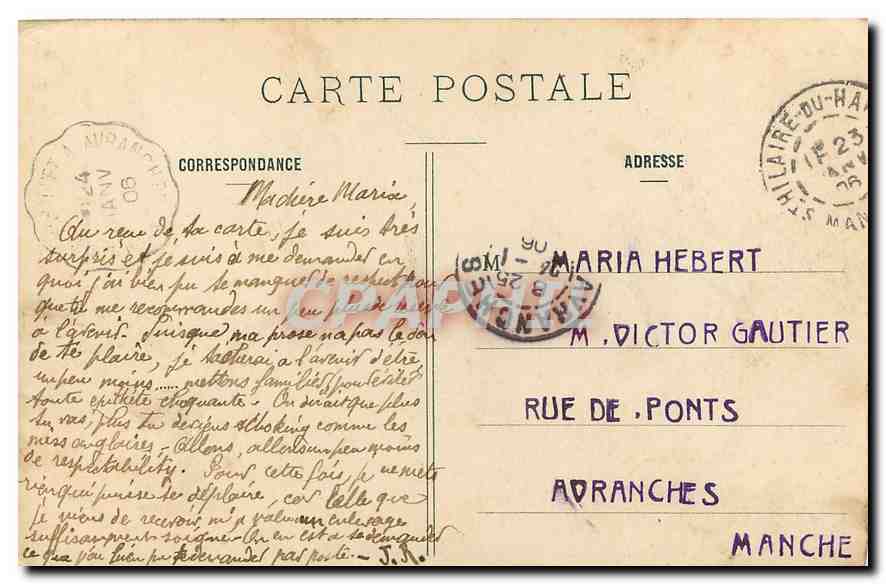 CARTE POSTALE
CORRESPONDANCE
ADRESSE
Ma chère Maria,
Au reçu de ta carte, je suis très
surpris et je suis à me demander en
quoi j'ai bien pu te manquer de respect pour
que tu me recommandes un peu plus
à l'avenir. Puisque ma prose n'a pas le don
de te plaire, je tacherai a l'avenir d'être
un peu moins ..... mettons familier, pour éviter
toute épithète choquante. - On dirait que plus
tu vas, plus tu deviens shoking comme les
miss anglaises. - Allons, allons un peu moins
de respectability. Pour cette fois, je ne mets
rien qui puisse te déplaire, car celle que
je viens de recevoir m'a valu un
suffisamment soigné. On en est a se demander
ce que j'ai bien pu demander par poste. - J.R.
M
MARIA HEBERT
M. VICTOR GAUTIER
RUE DE. PONTS
AVRANCHES
MANCHE
A AVRANCHES
24
JANV
06
ST HILAIRE-DU-HAR
23
06
MAN
AVRANCHES
8
25 - 1
06
CPAPHIL